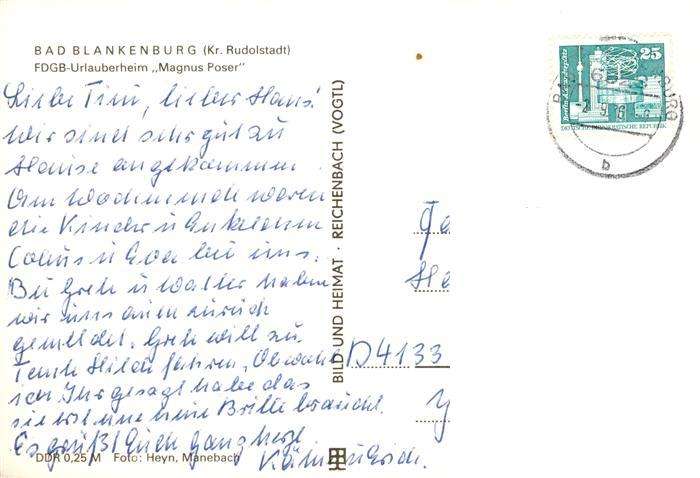 BAD BLANKENBURG (Kr. Rudolstadt)
FDGB-Urlauberheim „Magnus Poser"
Liebe Tini, lieber Hans!
Wir sind sehr gut zu
Hause angekommen.
Am Wochenende waren
die Kinder u Enkelchen
u Eva bei uns.
Bei Gretl u Walter haben
wir uns auch zurück
gemeldet. Gretl will zu
Tante Hilde fahren, Obwohl
ich Ihr gesagt habe das
sie erst eine neue Brille braucht.
Es grüßt Euch ganz herzl
Käthe u Erich.
DDR 0,25 M Foto: Heyn, Manebach
BILD UND HEIMAT · REICHENBACH (VOGTL)
25
Berlin-Alexanderplatz
DEUTSCHE DEMOKRATISCHE REPUBLIK
b
D4133